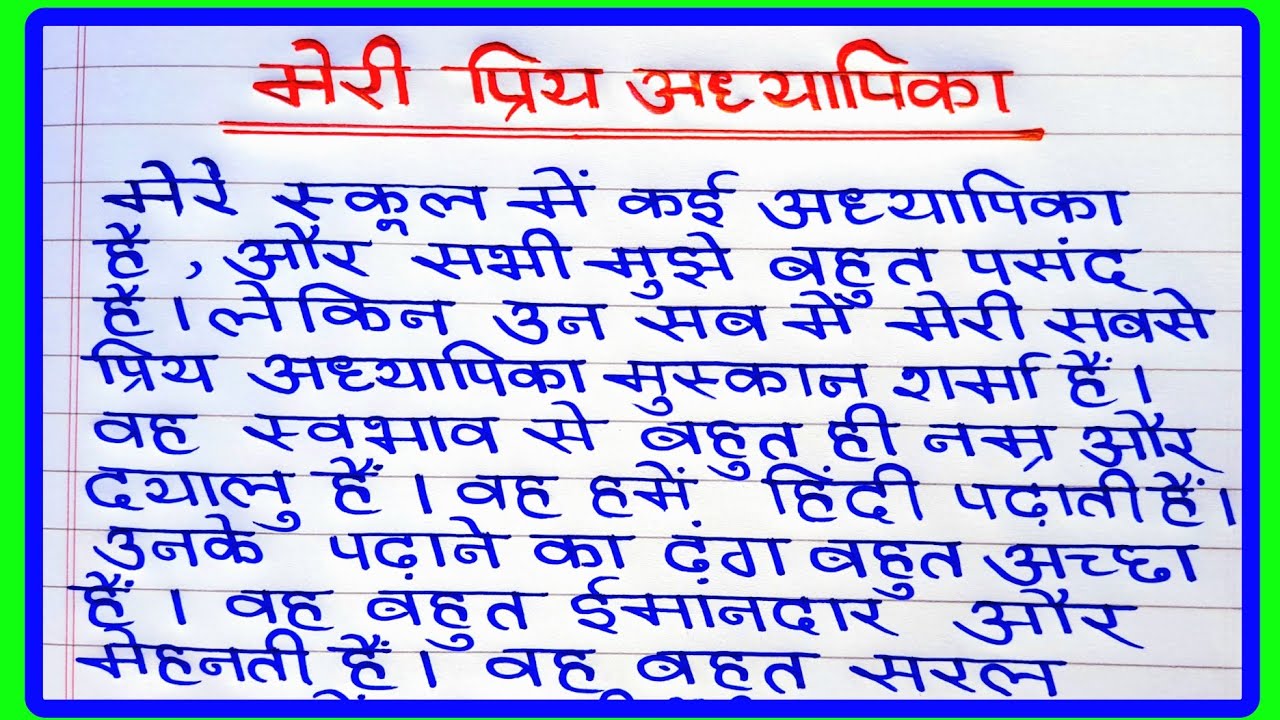 मेरी प्रिय अध्यापिका
मेरे स्कूल में कई अध्यापिका
हैं, और सभी मुझे बहुत पसंद
हैं। लेकिन उन सब में मेरी सबसे
प्रिय अध्यापिका मुस्कान शर्मा हैं।
वह स्वभाव से बहुत ही नम्र और
दयालु हैं। वह हमें हिंदी पढ़ाती हैं।
उनके पढ़ाने का ढ़ंग बहुत अच्छा
हैं। वह बहुत ईमानदार और
मेहनती हैं। वह बहुत सरल